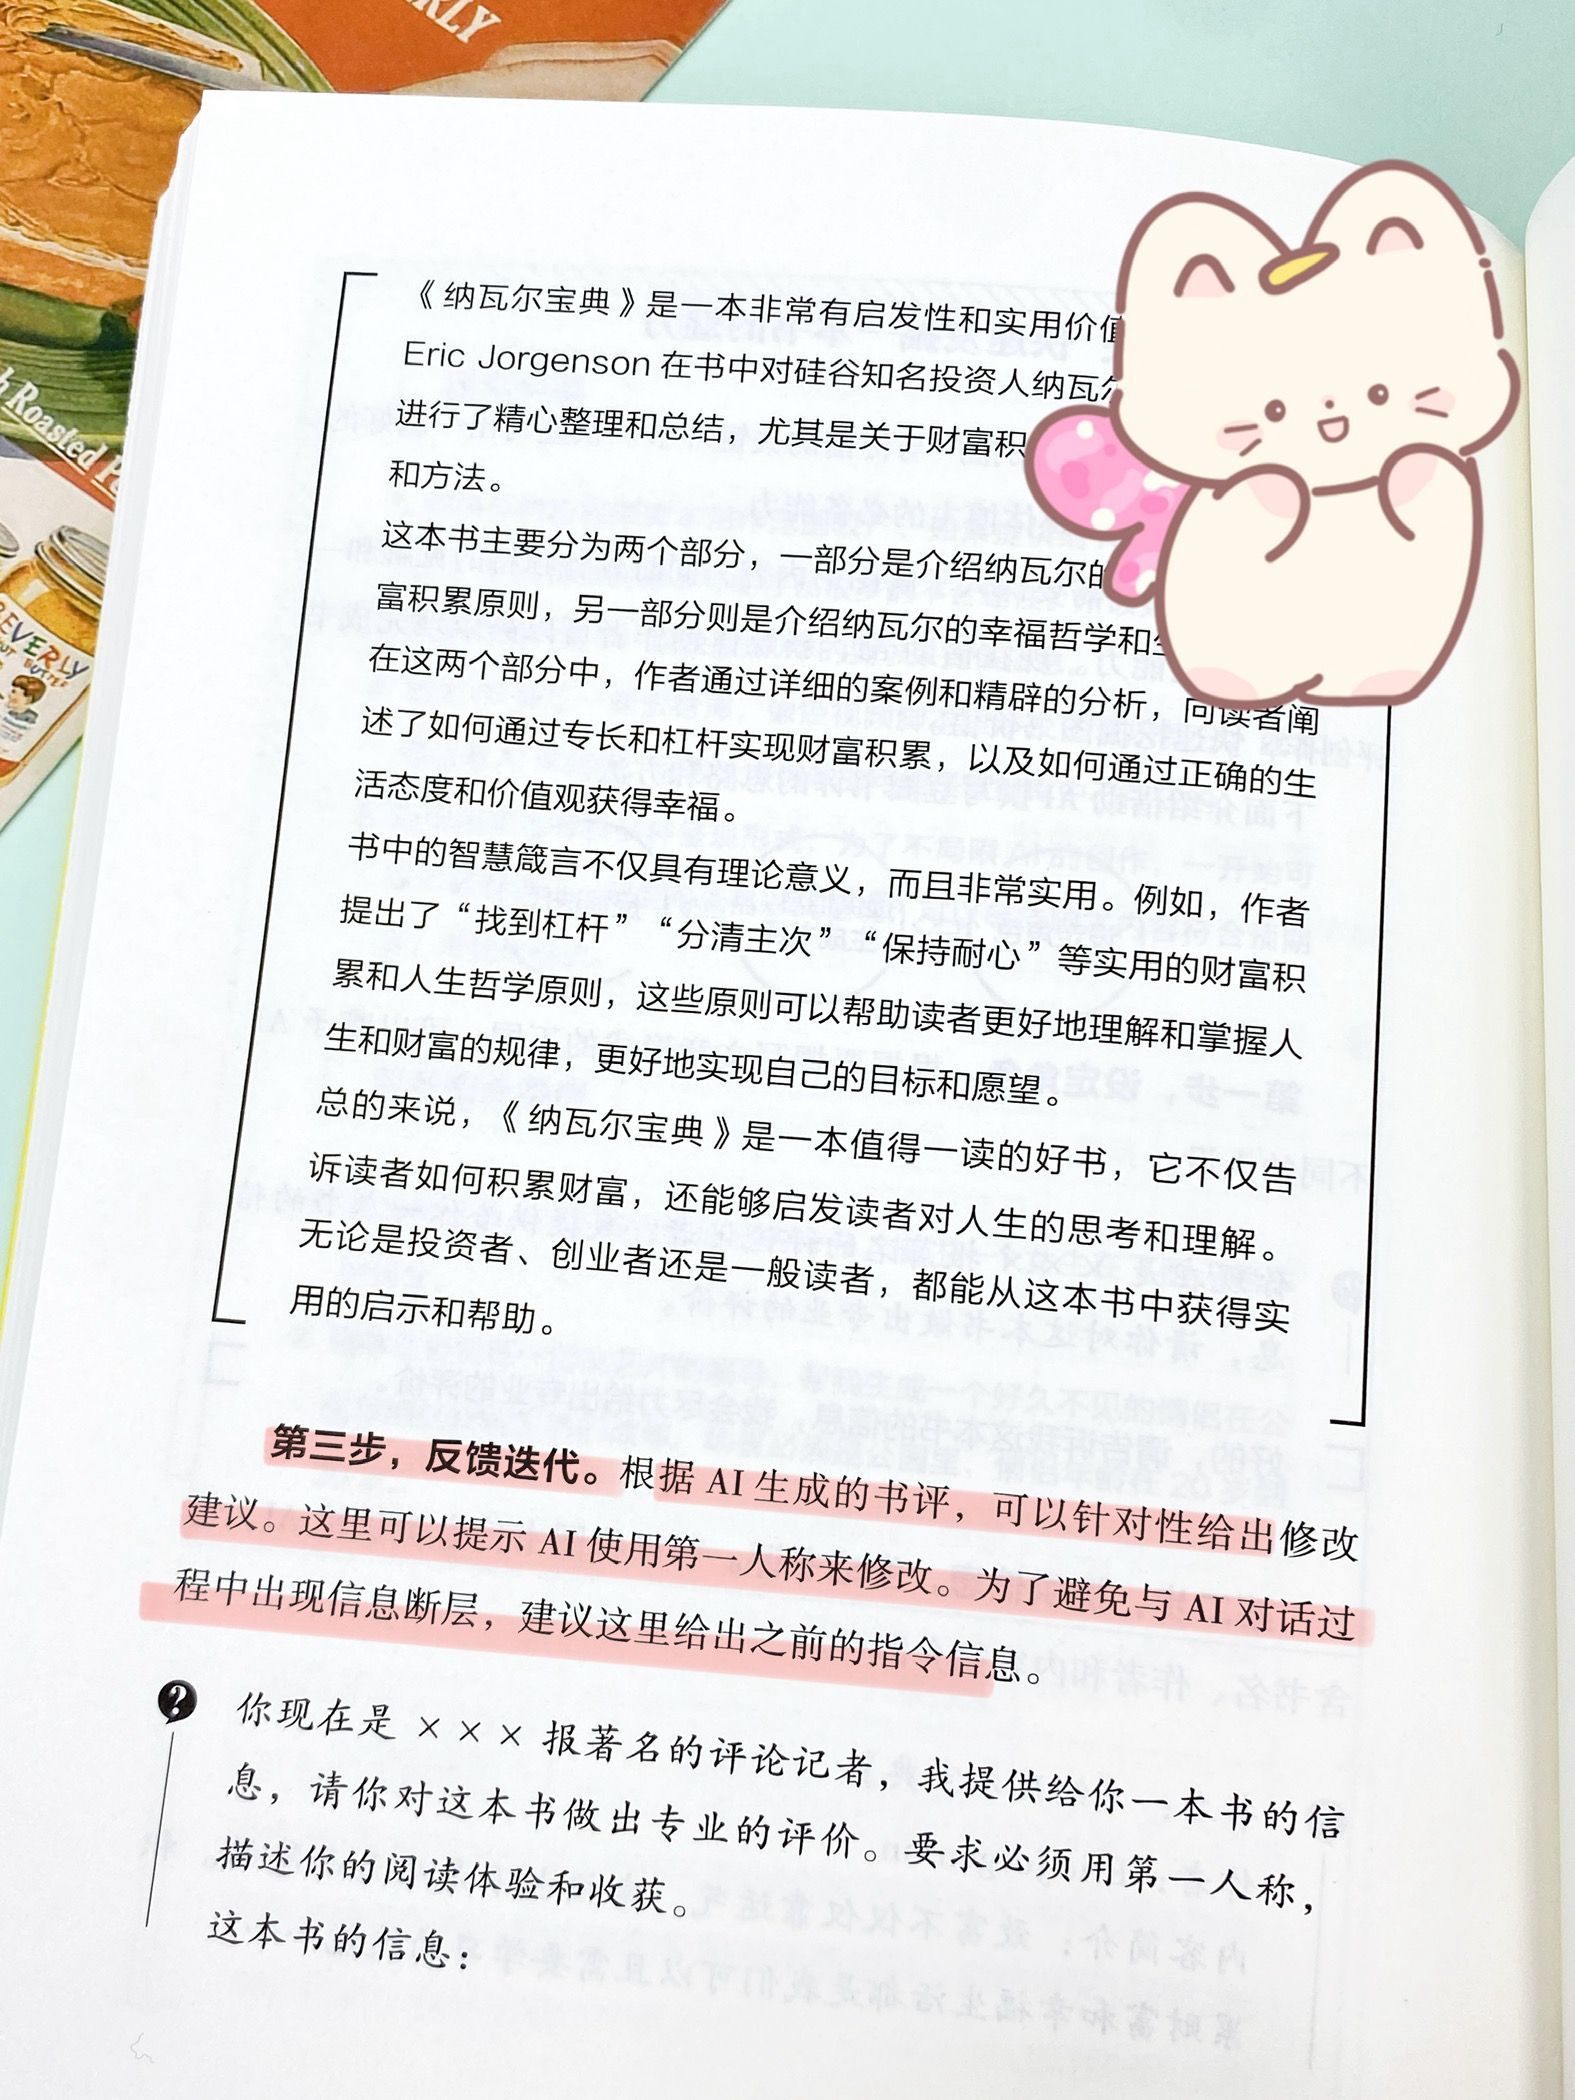 RLY
h Roasted P
BEVERLY
BUTTER
《纳瓦尔宝典》是一本非常有启发性和实用价值
Eric Jorgenson 在书中对硅谷知名投资人纳瓦尔
进行了精心整理和总结，尤其是关于财富积
和方法。
这本书主要分为两个部分，一部分是介绍纳瓦尔的
富积累原则，另一部分则是介绍纳瓦尔的幸福哲学和
在这两个部分中，作者通过详细的案例和精辟的分析，向读者阐
述了如何通过专长和杠杆实现财富积累，以及如何通过正确的生
活态度和价值观获得幸福。
书中的智慧箴言不仅具有理论意义，而且非常实用。例如，作者
提出了“找到杠杆”“分清主次”“保持耐心”等实用的财富积
累和人生哲学原则，这些原则可以帮助读者更好地理解和掌握人
生和财富的规律，更好地实现自己的目标和愿望。
总的来说，《纳瓦尔宝典》是一本值得一读的好书，它不仅告
诉读者如何积累财富，还能够启发读者对人生的思考和理解。
无论是投资者、创业者还是一般读者，都能从这本书中获得实
用的启示和帮助。
第三步，反馈迭代。根据 AI 生成的书评，可以针对性给出修改
建议。这里可以提示 AI 使用第一人称来修改。为了避免与 AI 对话过
程中出现信息断层，建议这里给出之前的指令信息。
?
你现在是 ××× 报著名的评论记者，我提供给你一本书的信
息，请你对这本书做出专业的评价。要求必须用第一人称，
描述你的阅读体验和收获。
这本书的信息：